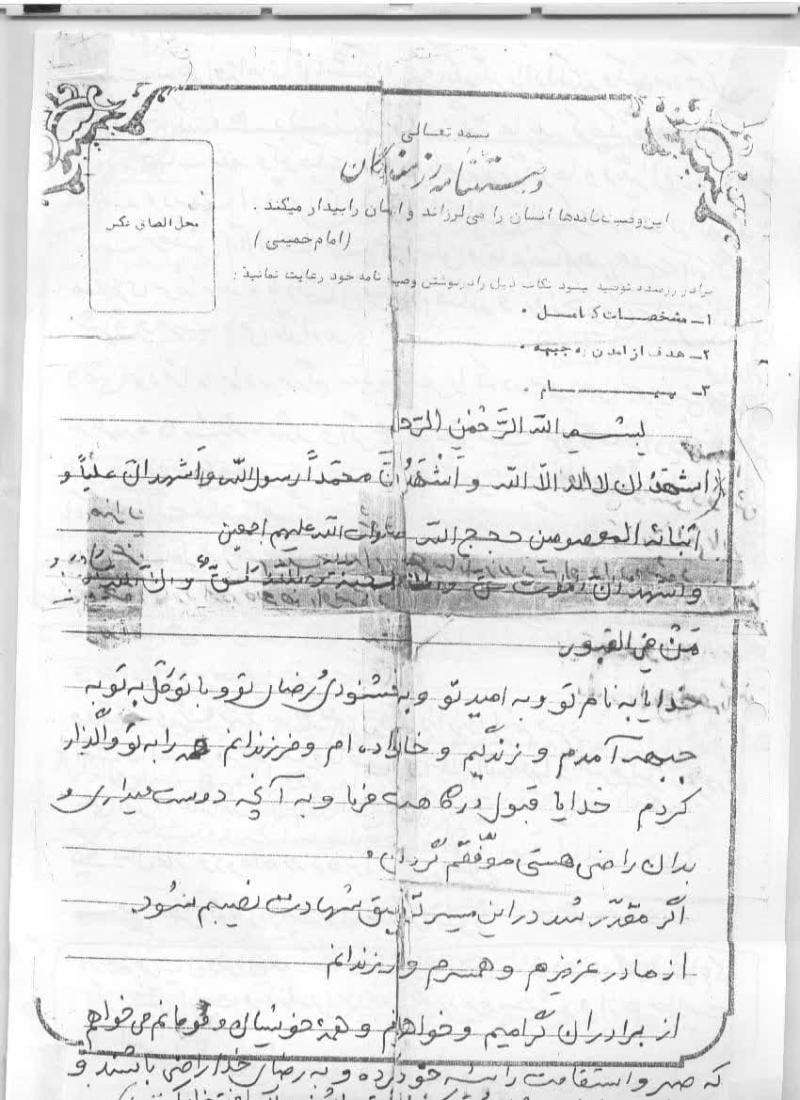 بسمه تعالی
وصیتنامه رزمندگان
محل الصاق عکس
این وصیت‌نامه‌ها انسان را می‌لرزاند و انسان را بیدار میکند .
(امام خمینی)
برادر رزمنده توصیه میشود نکات ذیل را در نوشتن وصیت نامه خود رعایت نمائید :
۱ــ مشخصات کامل .
۲ــ هدف از آمدن به جبهه .
۳ــ پیام .
بسم الله الرَّحمٰنِ الرَّح
اشهَدُ ان لا اله الاّ الله و اَشْهَدُ انَّ محمّداً رسول الله و اَشهد انّ علیاً و
ابنائه المعصومین حجج الله صلوات الله علیهم اجمعین
و اشهد انّ الموت حق و
مَنْ فی القبور
خدایا به نام تو و به امید تو و به خشنودی و رضای تو و با توکّل به تو به
جبهه آمدم و زندگیم و خانواده ام و فرزندانم همه را به تو واگذار
کردم خدایا قبول درگاهت فرما و به آنچه دوست میداری و
بدان راضی هستی موفّقم گردان .
اگر مقدّر شد در این مسیر توفیق شهادت نصیبم شود.
از مادر عزیزم و همسرم و فرزندانم
از برادران گرامیم و خواهرانم و همهٔ خویشان و قومانم می‌خواهم
که صبر و استقامت را پیشه خود کرده و به رضای خدا راضی باشند و